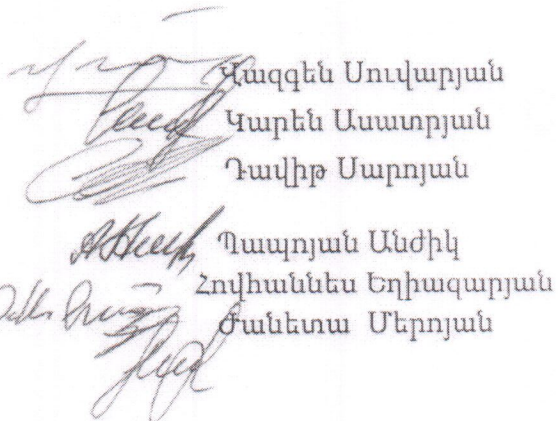 Վազգեն Սուվարյան
Կարեն Ասատրյան
Դավիթ Սարոյան
Պապոյան Անժիկ
Հովհաննես Եղիազարյան
Ժանետա Մերոյան